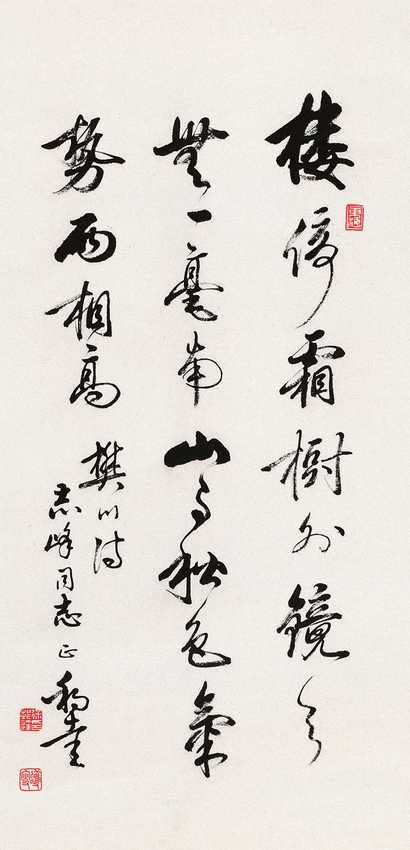 樓倚霜樹外鏡天
無一毫南山与秋色氣
勢两相高
樊川詩
志峰同志正